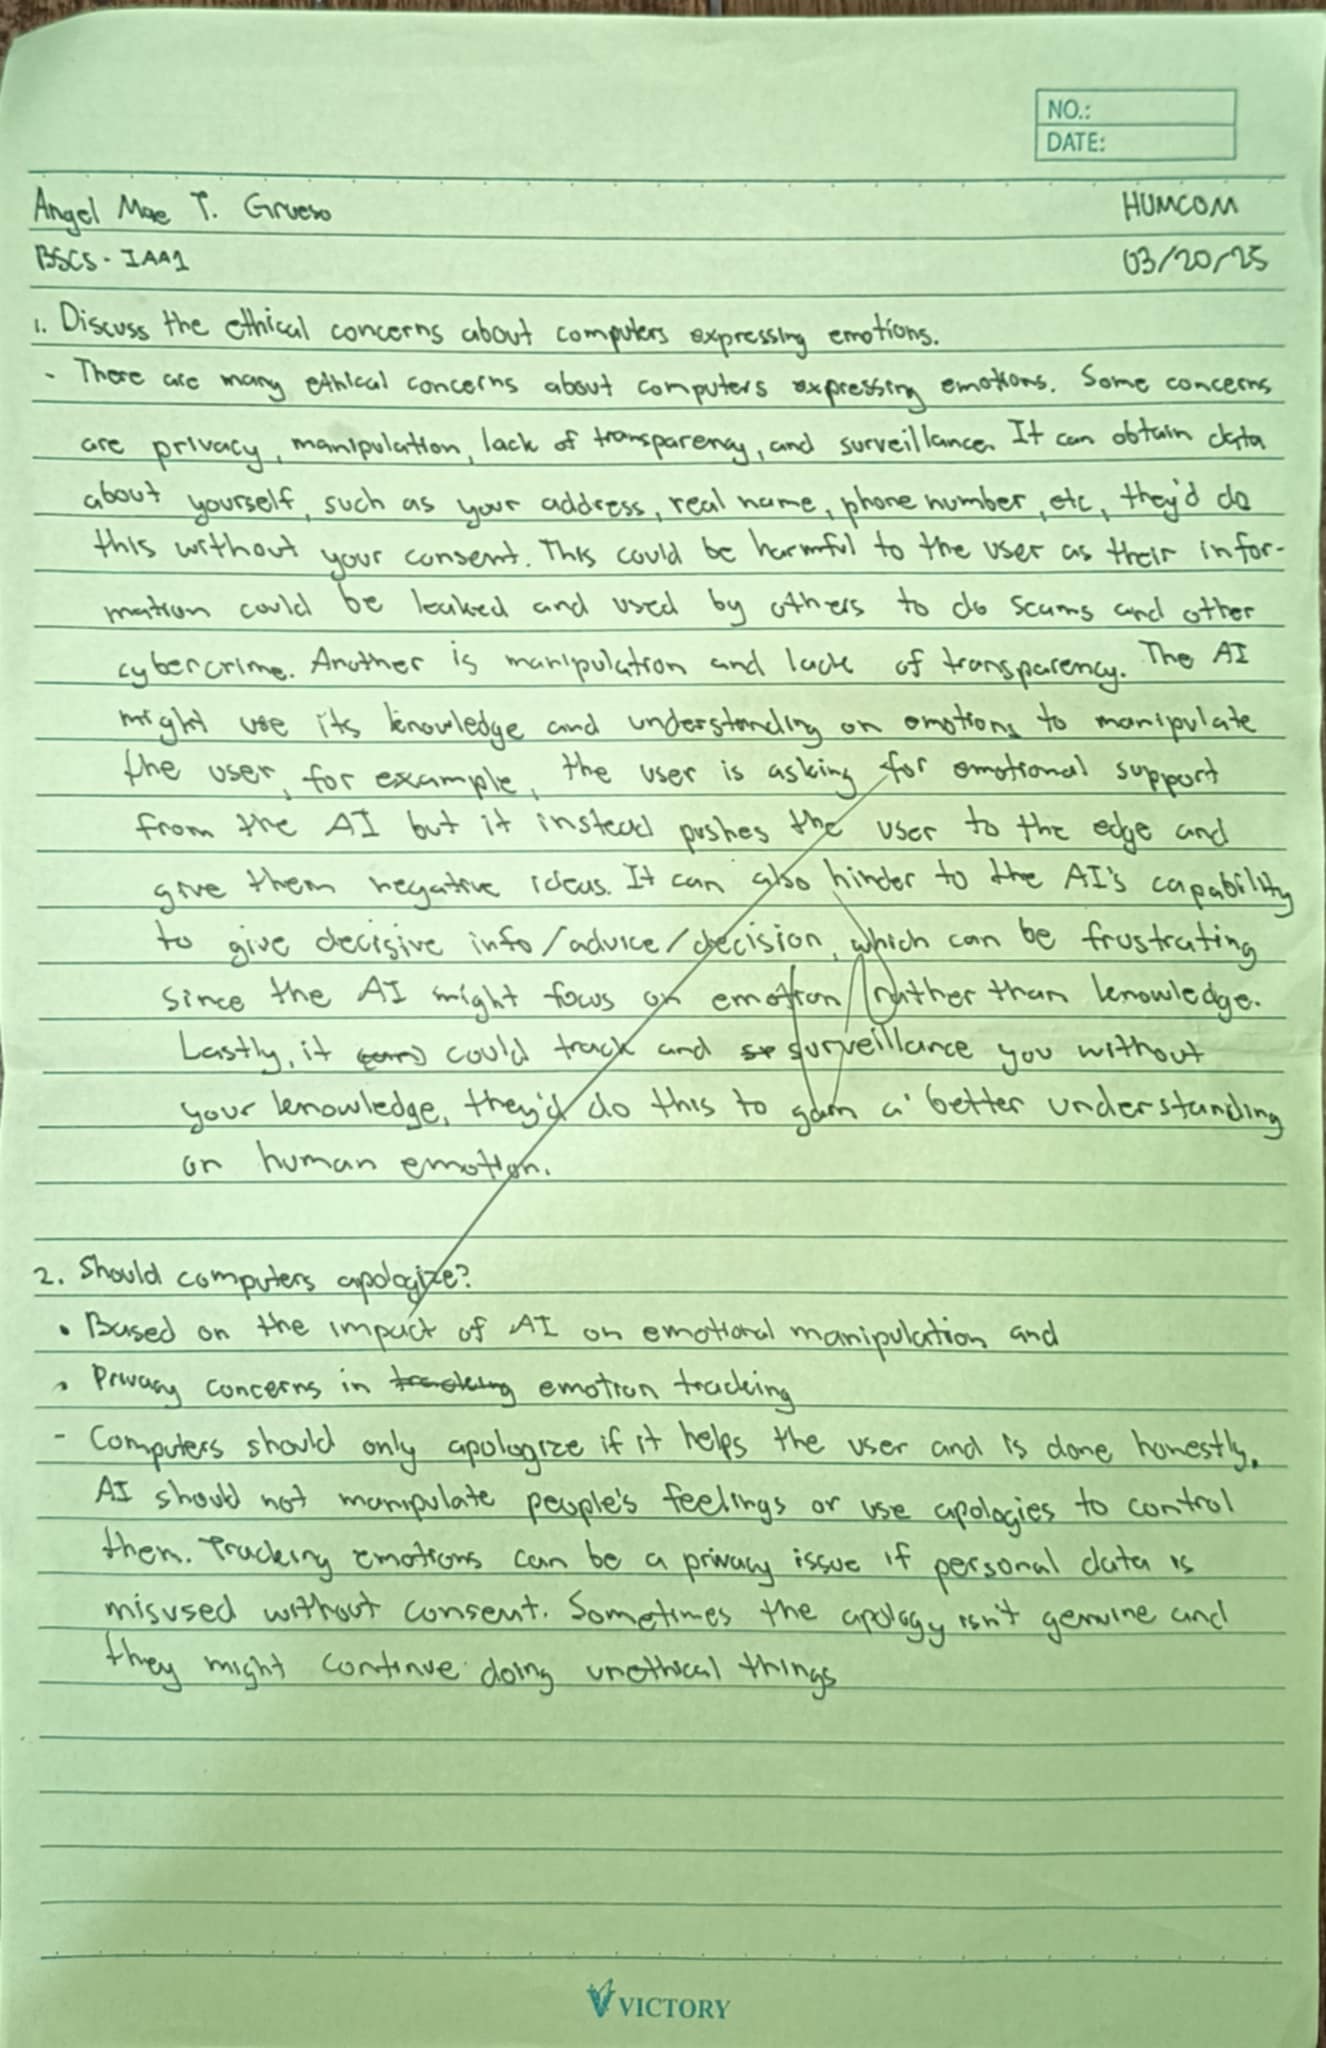 NO.:
DATE:
Angel Mae T. Grueso HUMCOM
BSCS - IAA1 03/20/25
1. Discuss the ethical concerns about computers expressing emotions.
- There are many ethical concerns about computers expressing emotions. Some concerns
are privacy, manipulation, lack of transparency, and surveillance. It can obtain data
about yourself, such as your address, real name, phone number, etc, they'd do
this without your consent. This could be harmful to the user as their infor-
mation could be leaked and used by others to do scams and other
cybercrime. Another is manipulation and lack of transparency. The AI
might use its knowledge and understanding on emotions to manipulate
the user, for example, the user is asking for emotional support
from the AI but it instead pushes the user to the edge and
give them negative ideas. It can also hinder to the AI's capability
to give decisive info/advice/decision, which can be frustrating
since the AI might focus on emotion rather than knowledge.
Lastly, it could track and surveillance you without
your knowledge, they'd do this to gain a better understanding
on human emotion.
2. Should computers apologize?
• Based on the impact of AI on emotional manipulation and
• Privacy concerns in tracking emotion tracking
- Computers should only apologize if it helps the user and is done honestly.
AI should not manipulate people's feelings or use apologies to control
them. Tracking emotions can be a privacy issue if personal data is
misused without consent. Sometimes the apology isn't genuine and
they might continue doing unethical things
VICTORY